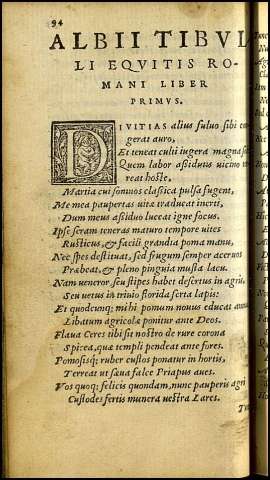 94
ALBII TIBVL
LI EQVITIS RO-
MANI LIBER
PRIMVS.
DIVITIAS alius fuluo sibi con
gerat auro,
Et teneat culti iugera magna
Quem labor aßiduus uicino
reat hoste.
Martia cui somnos classica pulsa fugent,
Me mea paupertas uita traducat inerti,
Dum meus aßiduo luceat igne focus.
Ipse seram teneras maturo tempore uites
Rusticus, & facili grandia poma manu,
Nec spes destituat, sed frugum semper aceruos
Præbeat, & pleno pinguia musta lacu.
Nam ueneror seu stipes habet desertus in agris,
Seu uetus in triuio florida serta lapis:
Et quodcunq; mihi pomum nouus educat annus
Libatum agricolæ ponitur ante Deos.
Flaua Ceres tibi sit nostro de rure corona
Spicea, quæ templi pendeat ante fores.
Pomosisq; ruber custos ponatur in hortis,
Terreat ut sæua falce Priapus aues.
Vos quoq; felicis quondam, nunc pauperis agri
Custodes fertis munera uestra Lares.